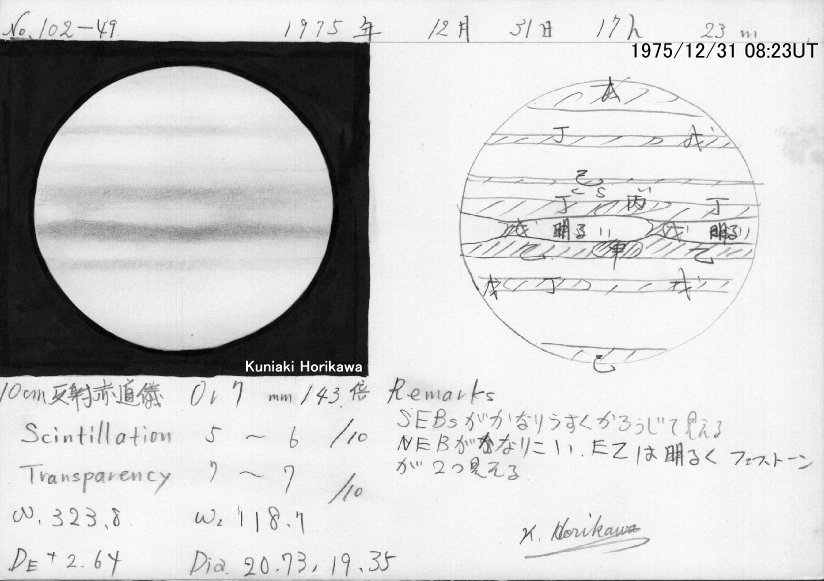 No. 102-49 1975年 12月 31日 17h 23m
1975/12/31 08:23UT
本
丁
己
くらい
丁 丙 丁
明るい 明るい
乙 甲 乙
丁
己
Kuniaki Horikawa
10cm反射赤道儀 Or 7 mm 143倍 Remarks
SEBsがかなりうすくかろうじて見える
Scintillation 5 ~ 6 /10
NEBがかなりこい. EZは明るく フェストーン
が2つ見える
Transparency 7 ~ 7 /10
W1 323.8 W2 118.7
K. Horikawa
DE +2.64 Dia. 20.73, 19.35